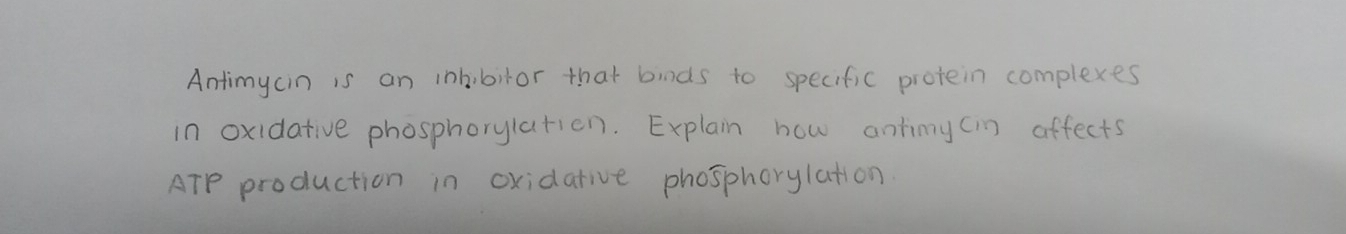 Antimycin is an inhibitor that binds to specific protein complexes
in oxidative phosphorylation. Explain how antimycin affects
ATP production in oxidative phosphorylation.